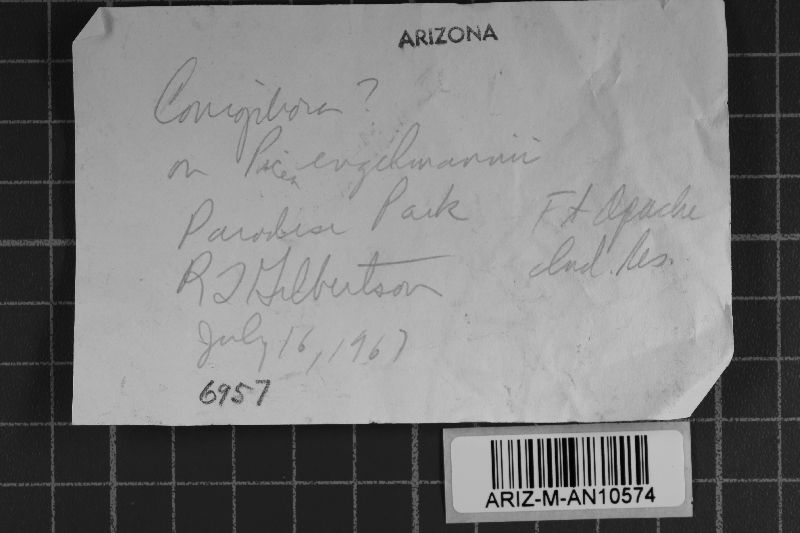 ARIZONA
Coniophora ?
on Picea engelmannii
Paradise Park Ft Apache
R L Gilbertson Ind. Res.
July 16, 1967
6957
ARIZ-M-AN10574